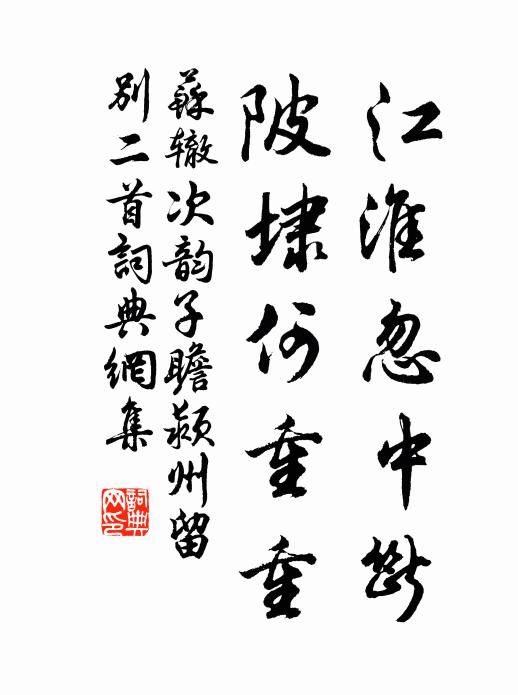 江淮忽中断
陂埭何重重
蘇辙次韵子瞻颍州留
别二首詞典網集
詞典网印